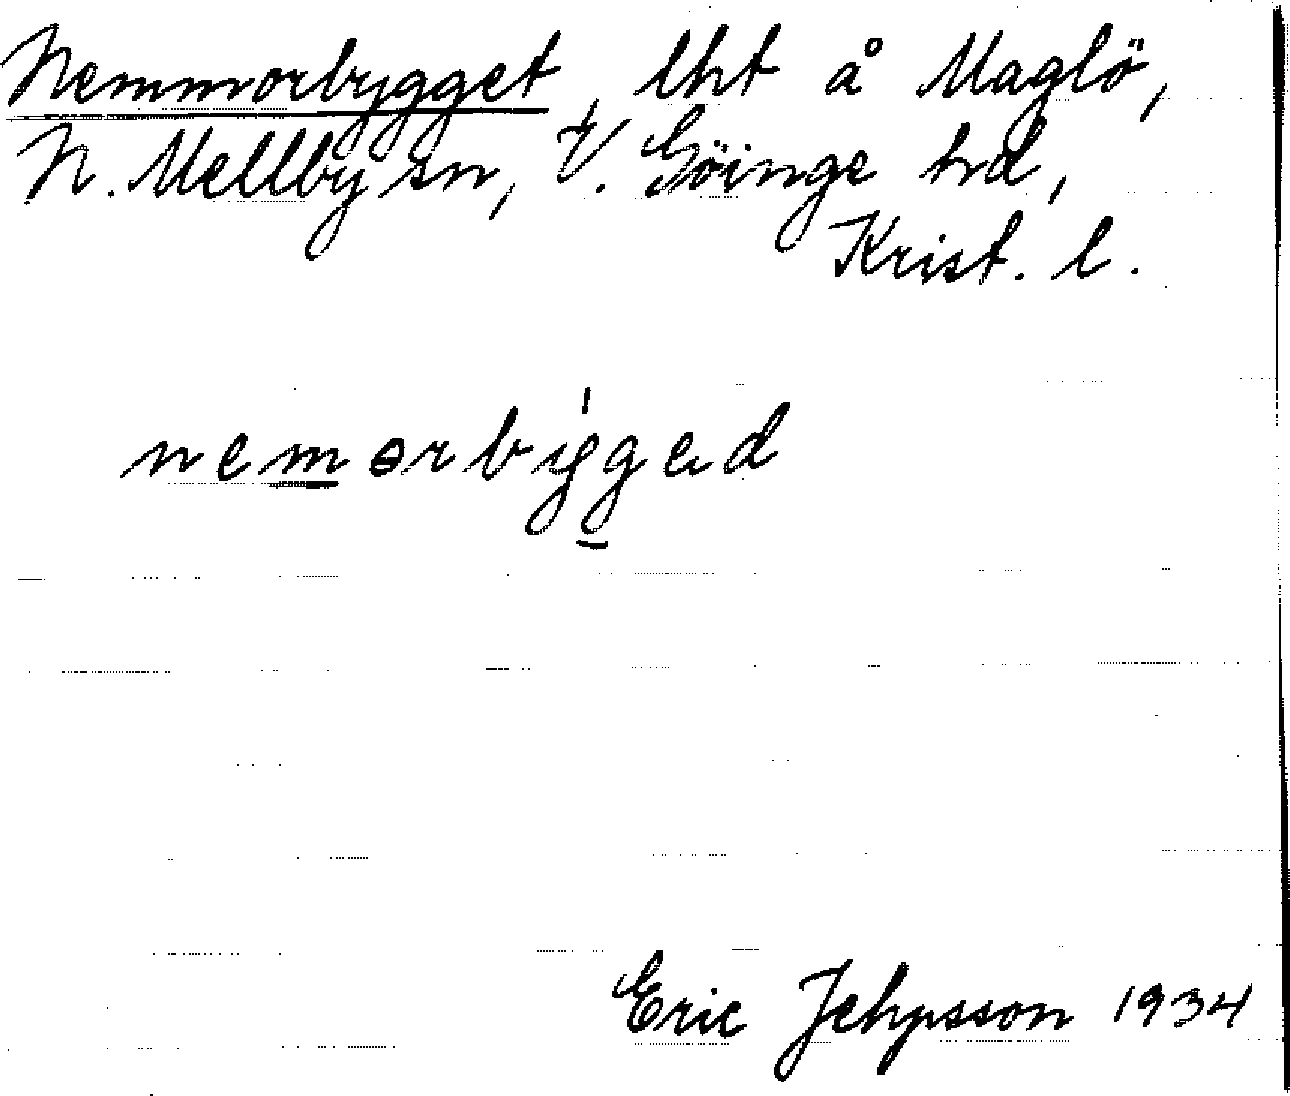 Nemmorbygget, lht å Maglö,
N. Mellby sn, V. Göinge hd,
Krist. l.
nemɵrbýgəd
Eric Jehpsson 1934